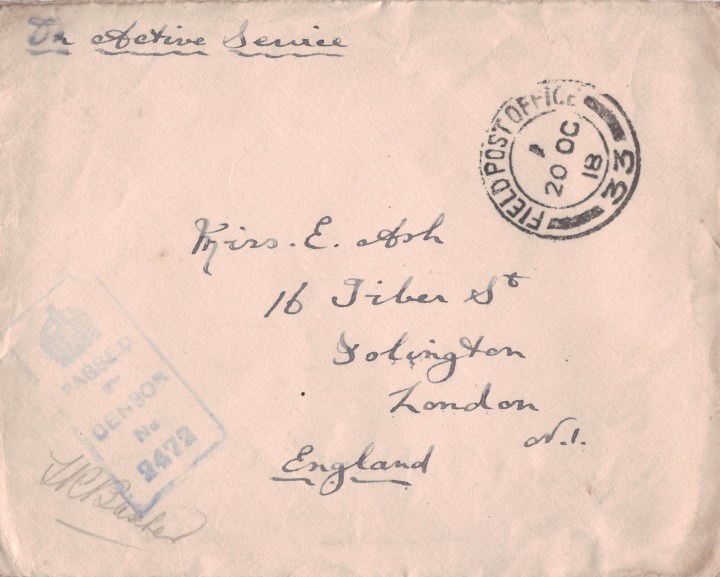 On Active Service
FIELD POST OFFICE
33
1
20 OC
18
Miss. E. Ash
16 Tiber St
Islington
London
N.1.
England
PASSED
BY
CENSOR
No
2472